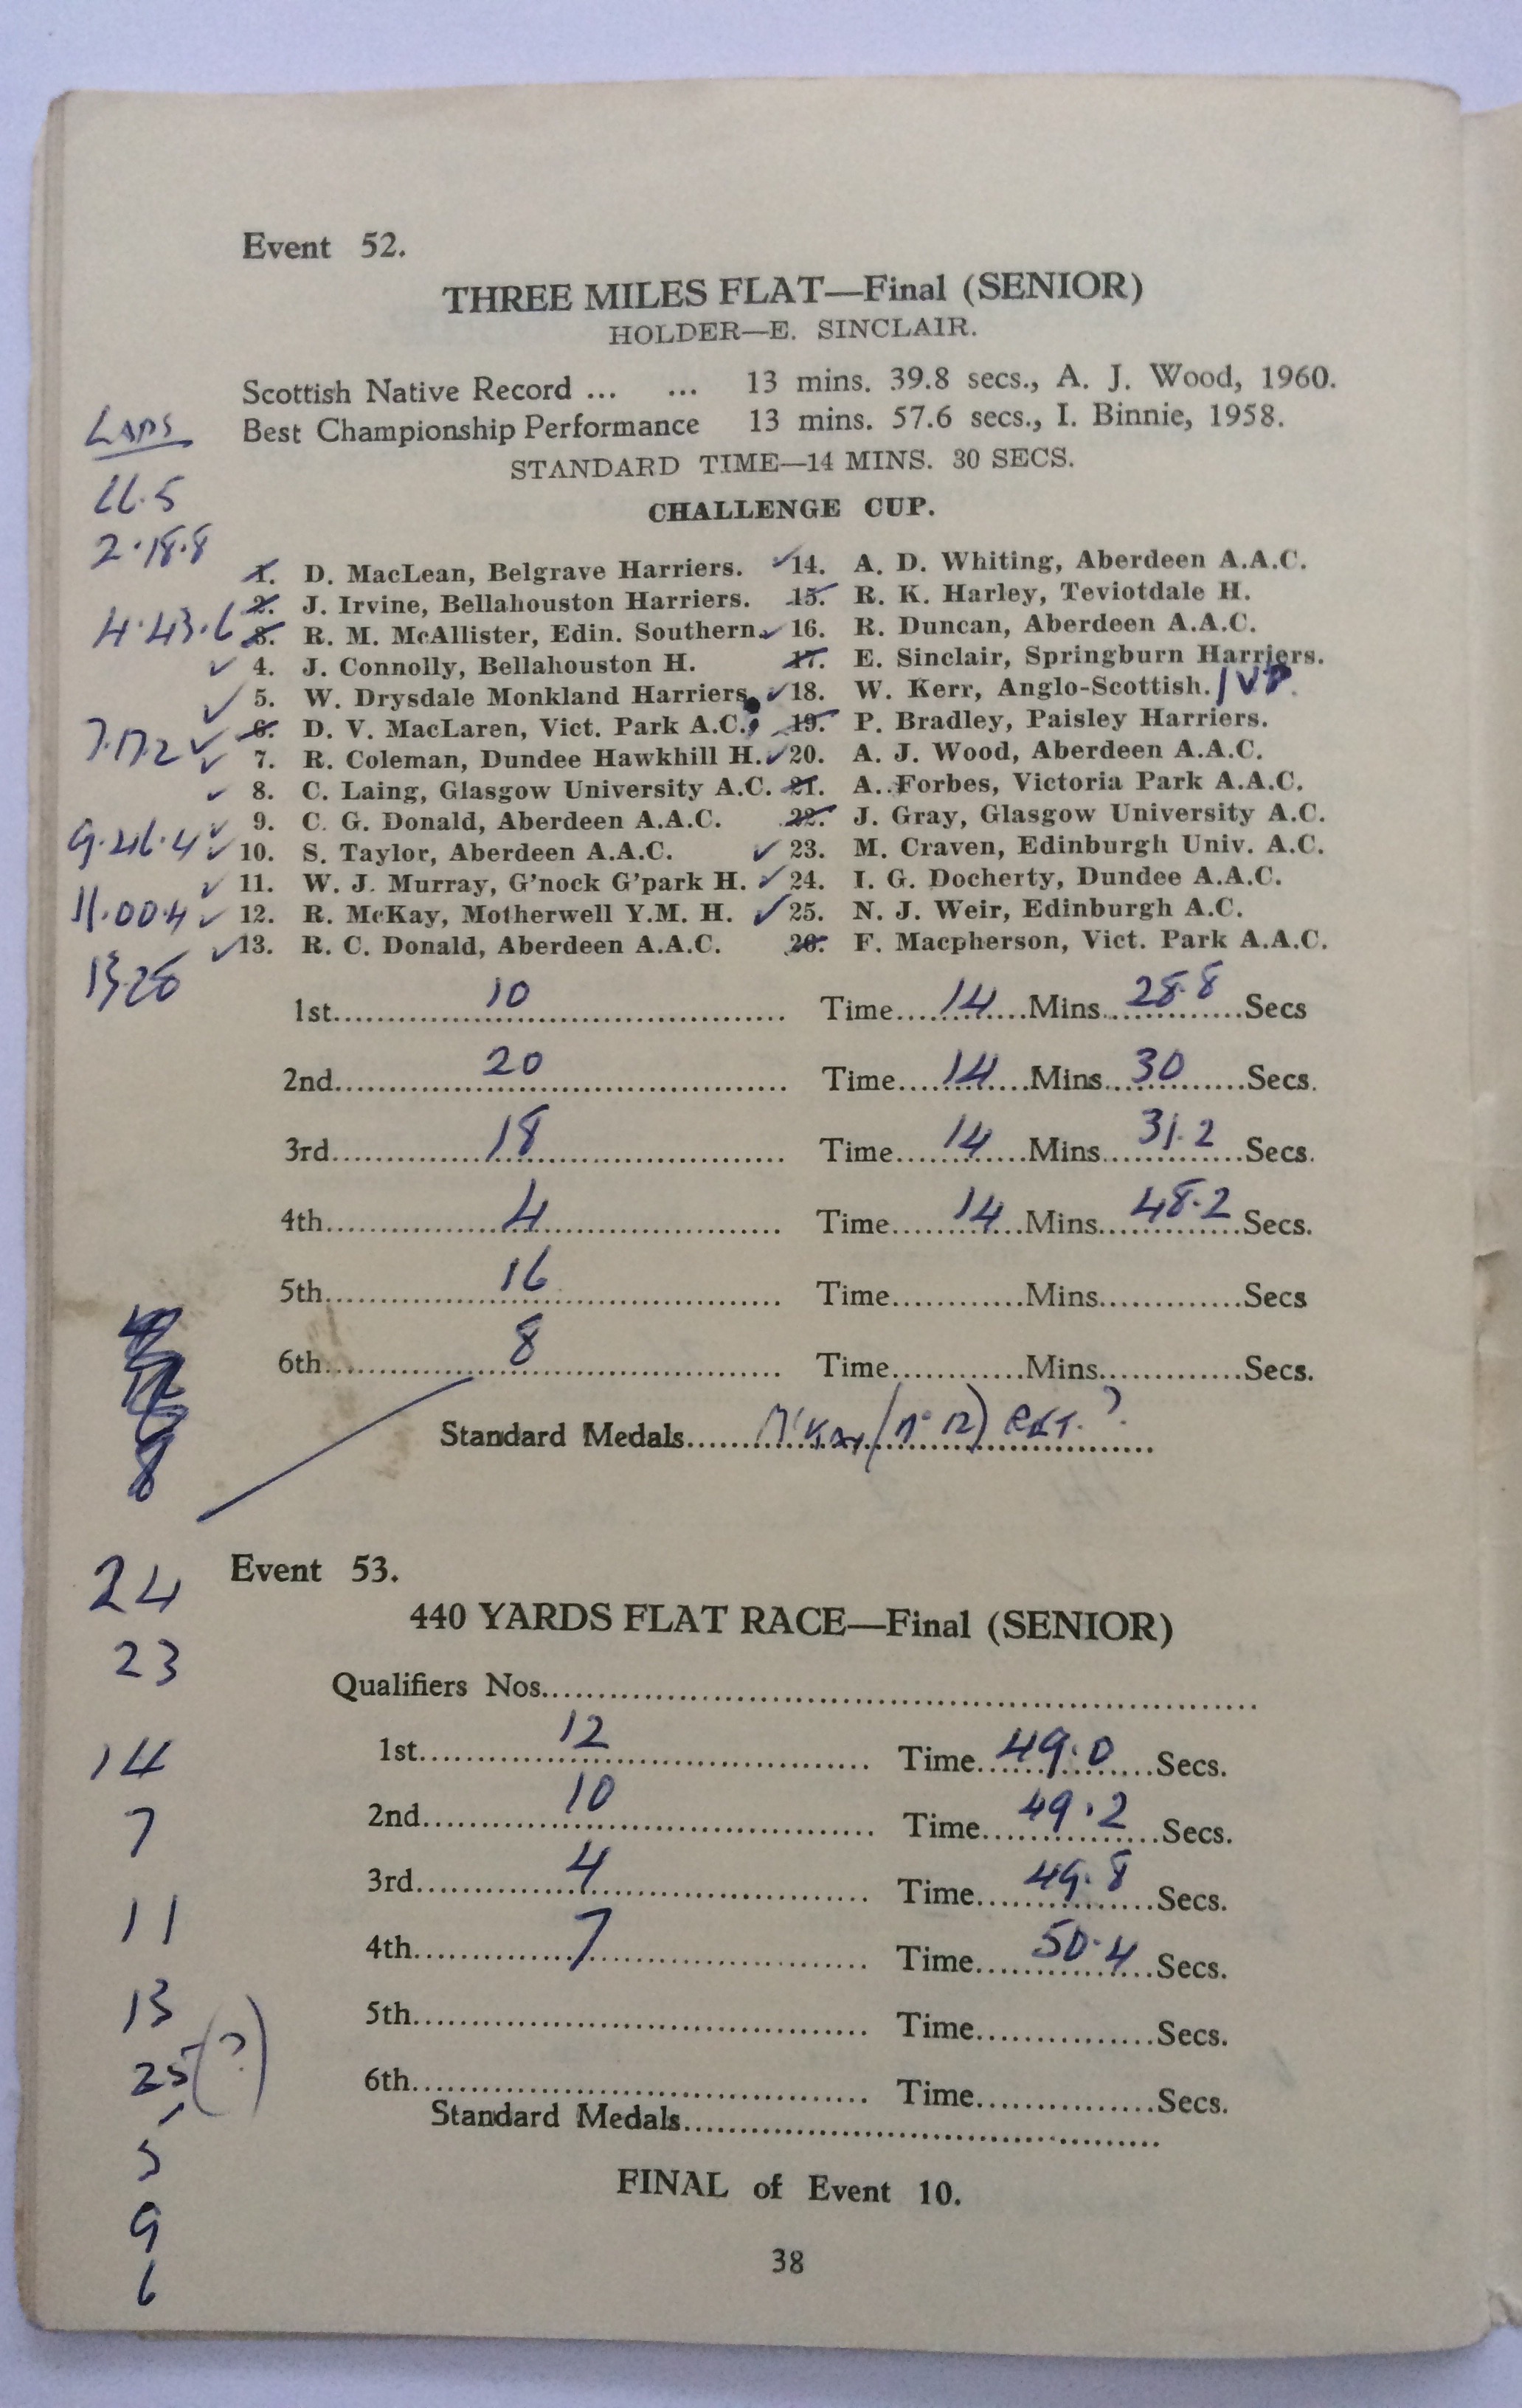 Event 52.
THREE MILES FLAT—Final (SENIOR)
HOLDER—E. SINCLAIR.
Scottish Native Record ... ... 13 mins. 39.8 secs., A. J. Wood, 1960.
Best Championship Performance 13 mins. 57.6 secs., I. Binnie, 1958.
STANDARD TIME—14 MINS. 30 SECS.
CHALLENGE CUP.
LAPS
66.5
2.18.8
4.43.6
7.17.2
9.46.4
11.00.4
13.26
1. D. MacLean, Belgrave Harriers.
2. J. Irvine, Bellahouston Harriers.
3. R. M. McAllister, Edin. Southern.
✓ 4. J. Connolly, Bellahouston H.
✓ 5. W. Drysdale Monkland Harriers
✓ 6. D. V. MacLaren, Vict. Park A.C.
✓ 7. R. Coleman, Dundee Hawkhill H.
✓ 8. C. Laing, Glasgow University A.C.
✓ 9. C. G. Donald, Aberdeen A.A.C.
✓ 10. S. Taylor, Aberdeen A.A.C.
✓ 11. W. J. Murray, G'nock G'park H.
✓ 12. R. McKay, Motherwell Y.M. H.
✓ 13. R. C. Donald, Aberdeen A.A.C.
✓ 14. A. D. Whiting, Aberdeen A.A.C.
15. R. K. Harley, Teviotdale H.
✓ 16. R. Duncan, Aberdeen A.A.C.
17. E. Sinclair, Springburn Harriers.
✓ 18. W. Kerr, Anglo-Scottish. / VP.
19. P. Bradley, Paisley Harriers.
✓ 20. A. J. Wood, Aberdeen A.A.C.
21. A. Forbes, Victoria Park A.A.C.
22. J. Gray, Glasgow University A.C.
✓ 23. M. Craven, Edinburgh Univ. A.C.
✓ 24. I. G. Docherty, Dundee A.A.C.
✓ 25. N. J. Weir, Edinburgh A.C.
26. F. Macpherson, Vict. Park A.A.C.
1st 10 Time 14 Mins. 28.8 Secs
2nd 20 Time 14 Mins 30 Secs.
3rd 18 Time 14 Mins 31.2 Secs.
4th 4 Time 14 Mins 48.2 Secs.
5th 16 Time Mins Secs
6th 8 Time Mins Secs.
Standard Medals M'Kay (No 12) RET. ?
8
24
23
14
7
11
13
25 (?)
5
9
6
Event 53.
440 YARDS FLAT RACE—Final (SENIOR)
Qualifiers Nos.
1st 12 Time 49.0 Secs.
2nd 10 Time 49.2 Secs.
3rd 4 Time 49.8 Secs.
4th 7 Time 50.4 Secs.
5th Time Secs.
6th Time Secs.
Standard Medals
FINAL of Event 10.
38